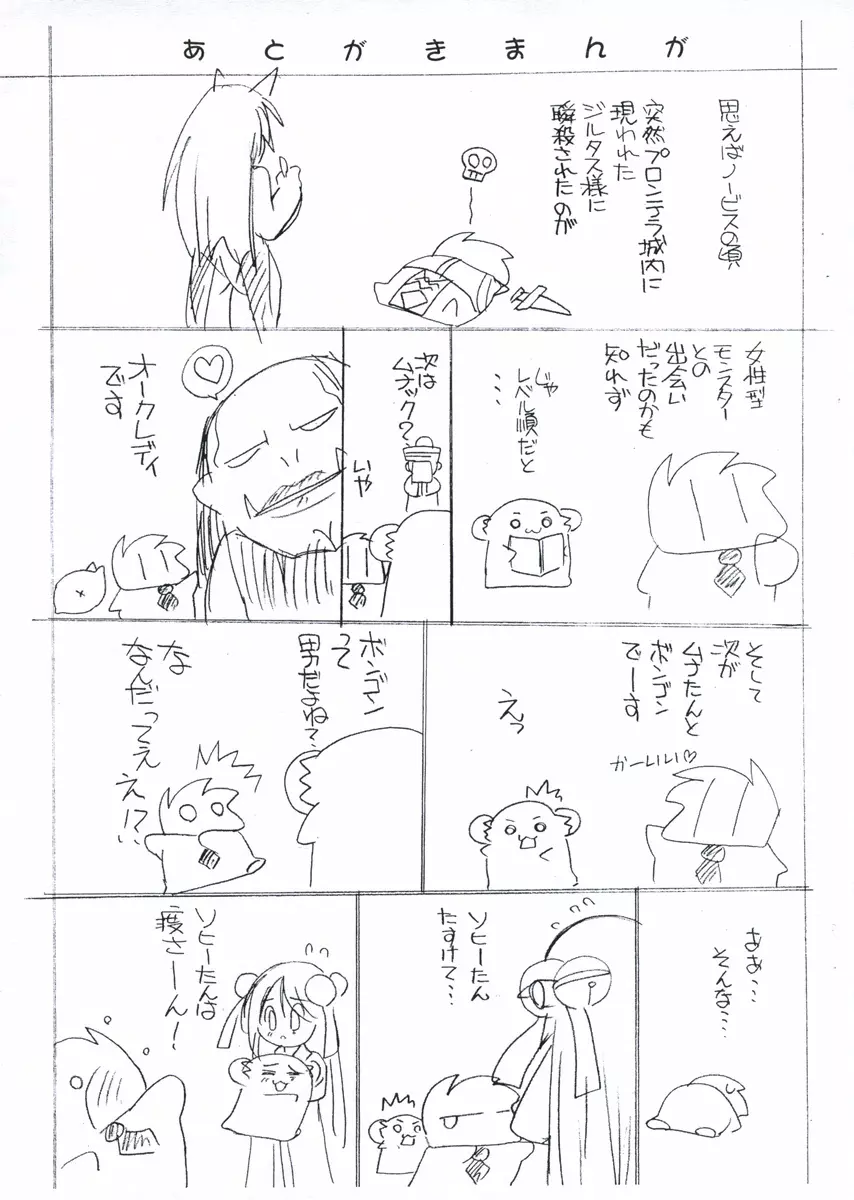 あとがきまんが
思えばノービスの頃
突然プロンテラ城内に
現われた
ジルタス様に
瞬殺されたのが
女性型
モンスター
との
出会い
だったのかも
知れず
じゃ
レベル順だと
・・・
次は
ムナック？
いや
オークレディ
です
そして
次が
ムナたんと
ボンゴン
でーす
かーいい♡
えっ
ボンゴン
って
男だよね？
な
なんだってええ
え!?
ああ・・・
そんな・・・
ソヒーたん
たすけて・・・
ソヒーたんは
渡さーん！